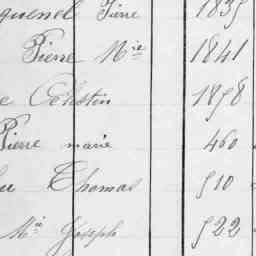 quenel Pierre 1835
Pierre Mie 1841
e Célestin 1898
Pierre marie 460
Thomas 510
Mie Joseph 522